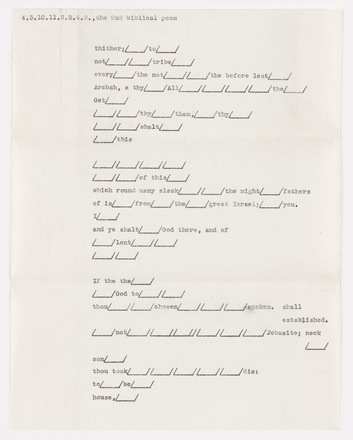 4.5.10.11.2.8.4.2.,the 2nd biblical poem
thither;/____/to/____/
not/____/ /____/tribe/____/
every/____/the not/____/ /____/the before last/____/
Arabah, a thy/____/All/____/ /____/ /____/ /____/the/____/
Get/____/
/____/ /____/thy/____/them,/____/thy/____/
/____/ /____/shalt/____/
/____/this
/____/ /____/ /____/ /____/
/____/ /____/of this/____/
which round many slack/____/ /____/the might/____/fathers
of is/____/from/____/the/____/great Israel;/____/you.
I/____/
and ye shalt/____/God there, and of
/____/lent/____/ /____/
/____/ /____/
If the the/____/
/____/God to/____/ /____/
thou/____/ /____/chosen/____/ /____/ /____/spoken. shall
established.
/____/not/____/ /____/ /____/ /____/ /____/ /____/Jebusite; neck
/____/
son/____/
thou took/____/ /____/ /____/ /____/ /____/die:
to/____/be/____/
house,/____/